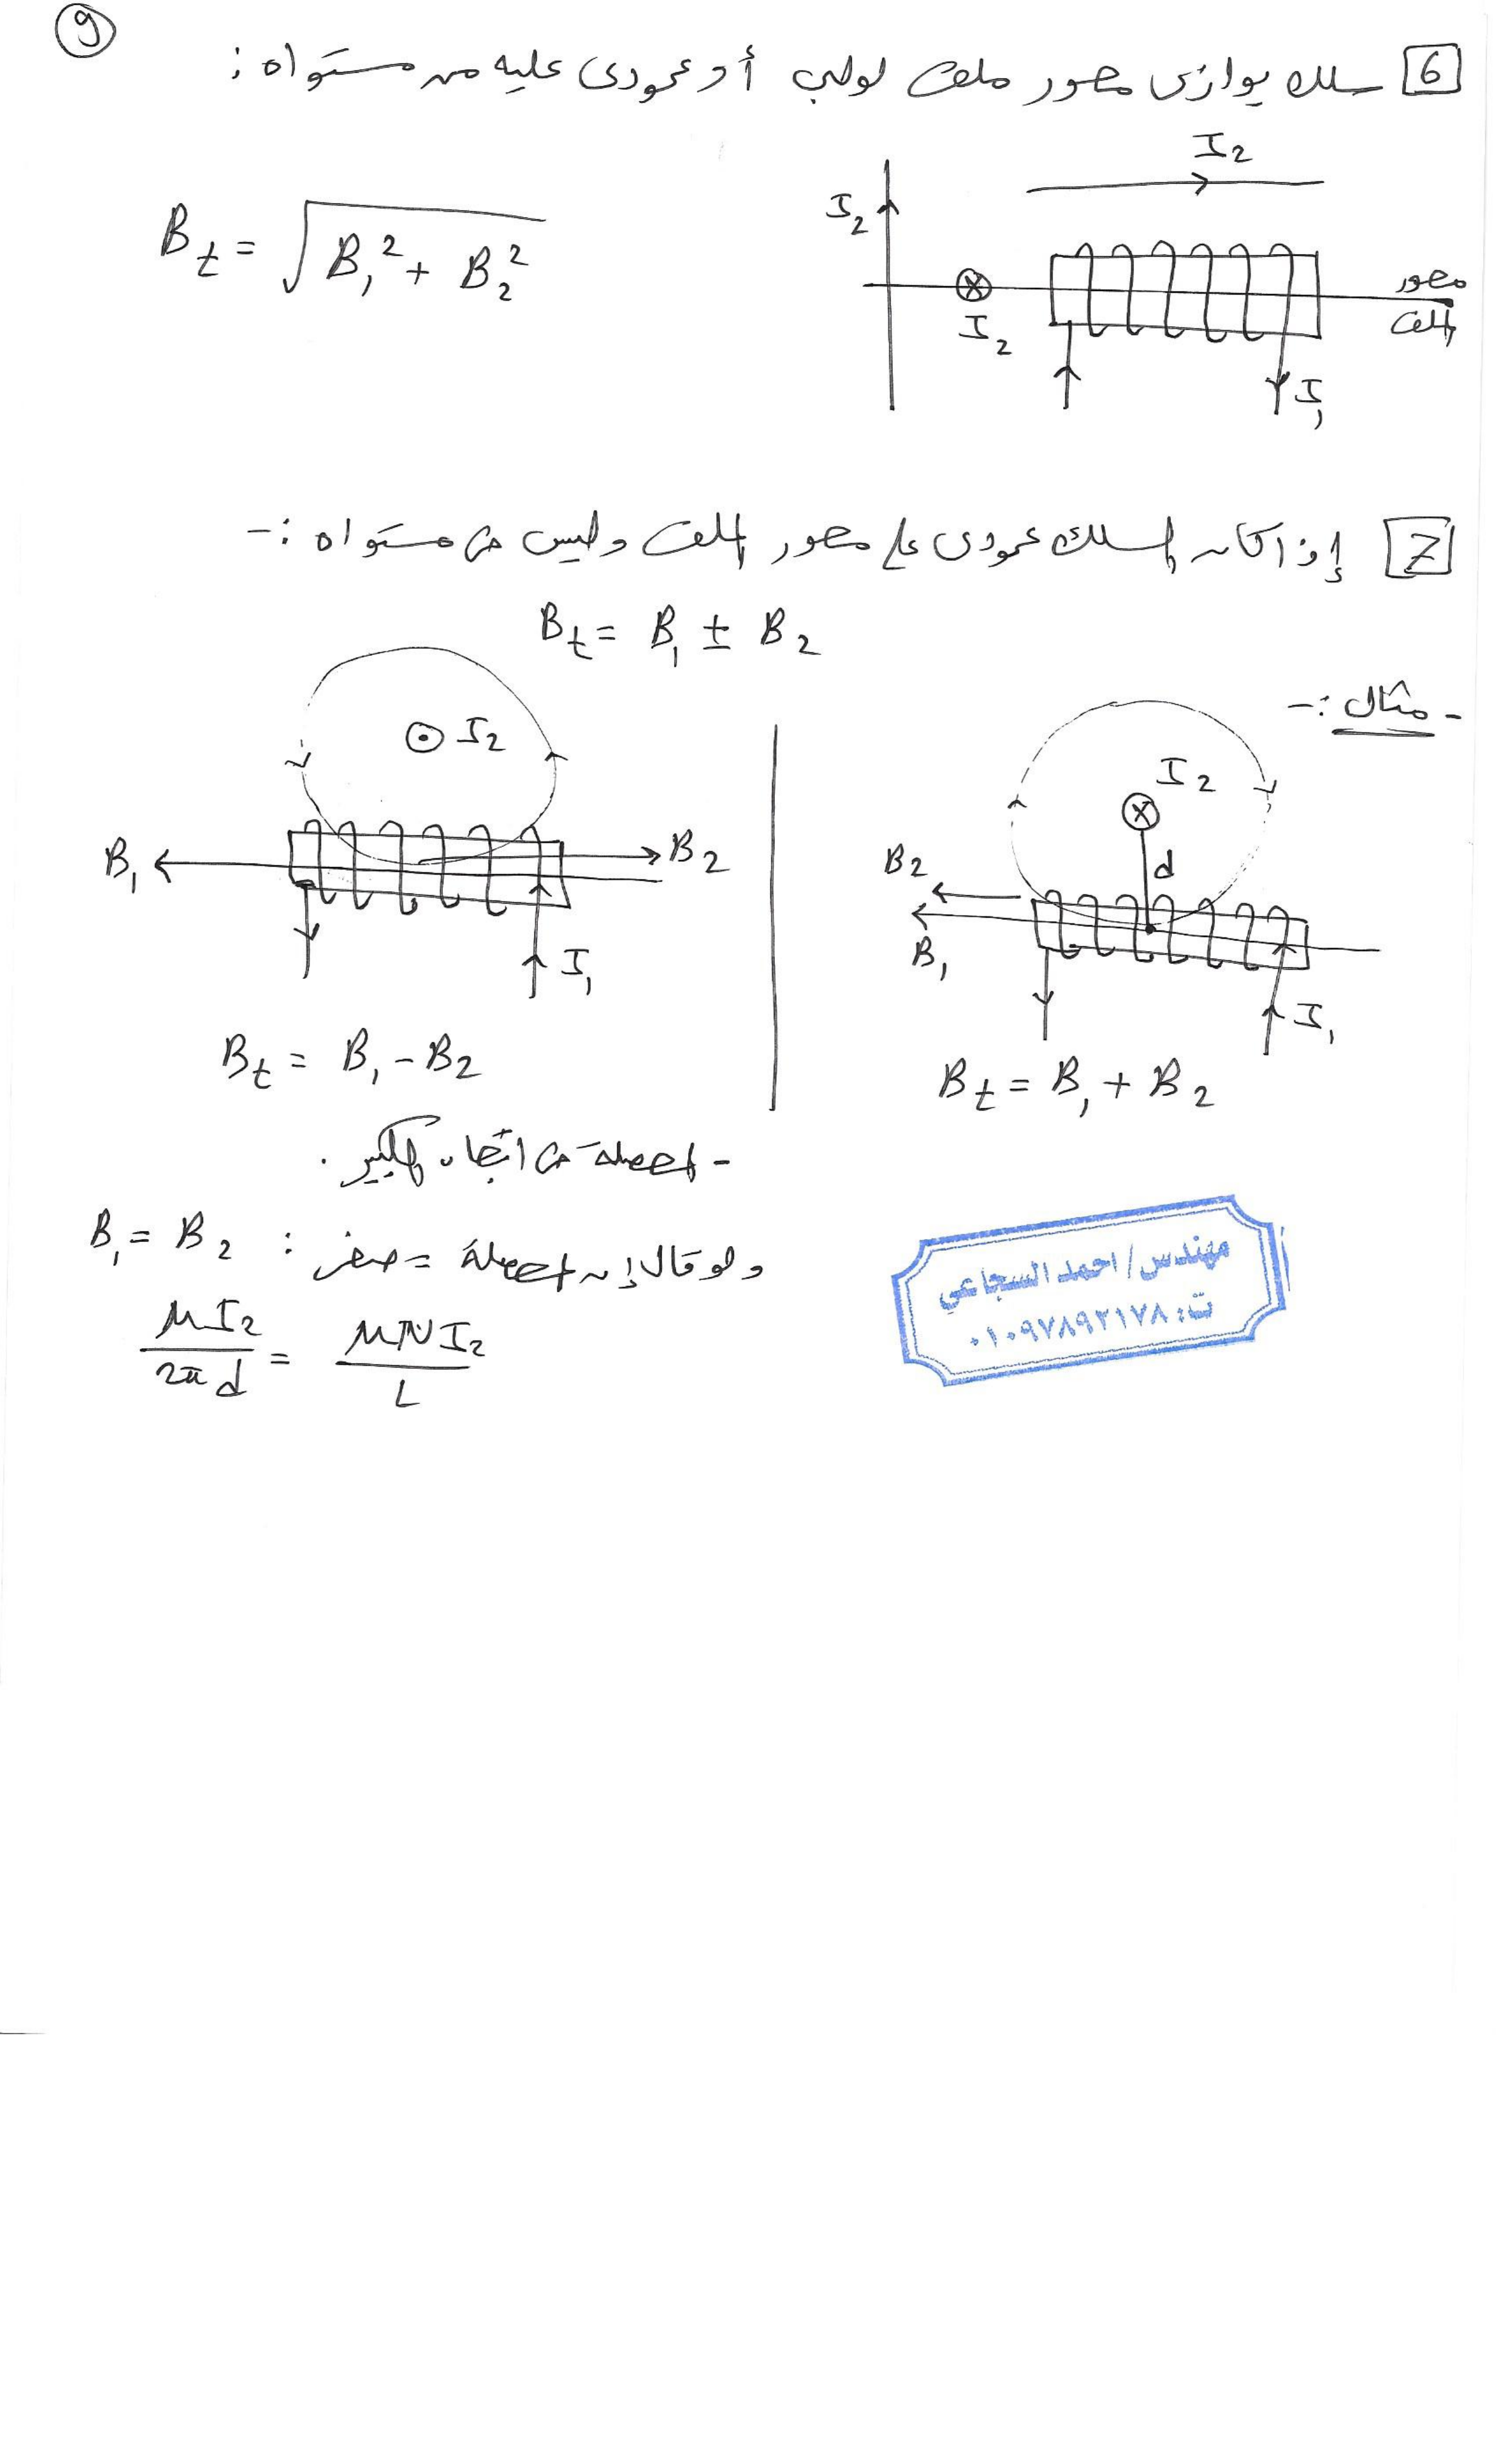 9
[6] سلك يوازى محور ملف لولبى أو عمودى عليه من مستواه :
I2
I2
B_t = √(B₁² + B₂²)
I2
محور
الملف
I₁
[7] إذا كان السلك عمودى على محور الملف وليس فى مستواه :-
B_t = B₁ ± B₂
- مثال :-
I2
d
B2
B₁
I₁
B_t = B₁ + B₂
I2
B₁
B2
I₁
B_t = B₁ - B₂
- المحصلة فى اتجاه الكبير .
ولو قال إن المحصلة = صفر : B₁ = B₂
μI₂/2πd = μNI₂/L
مهندس/ احمد السجاعي
ت: ٠١٠٩٧٨٩٢١٧٨